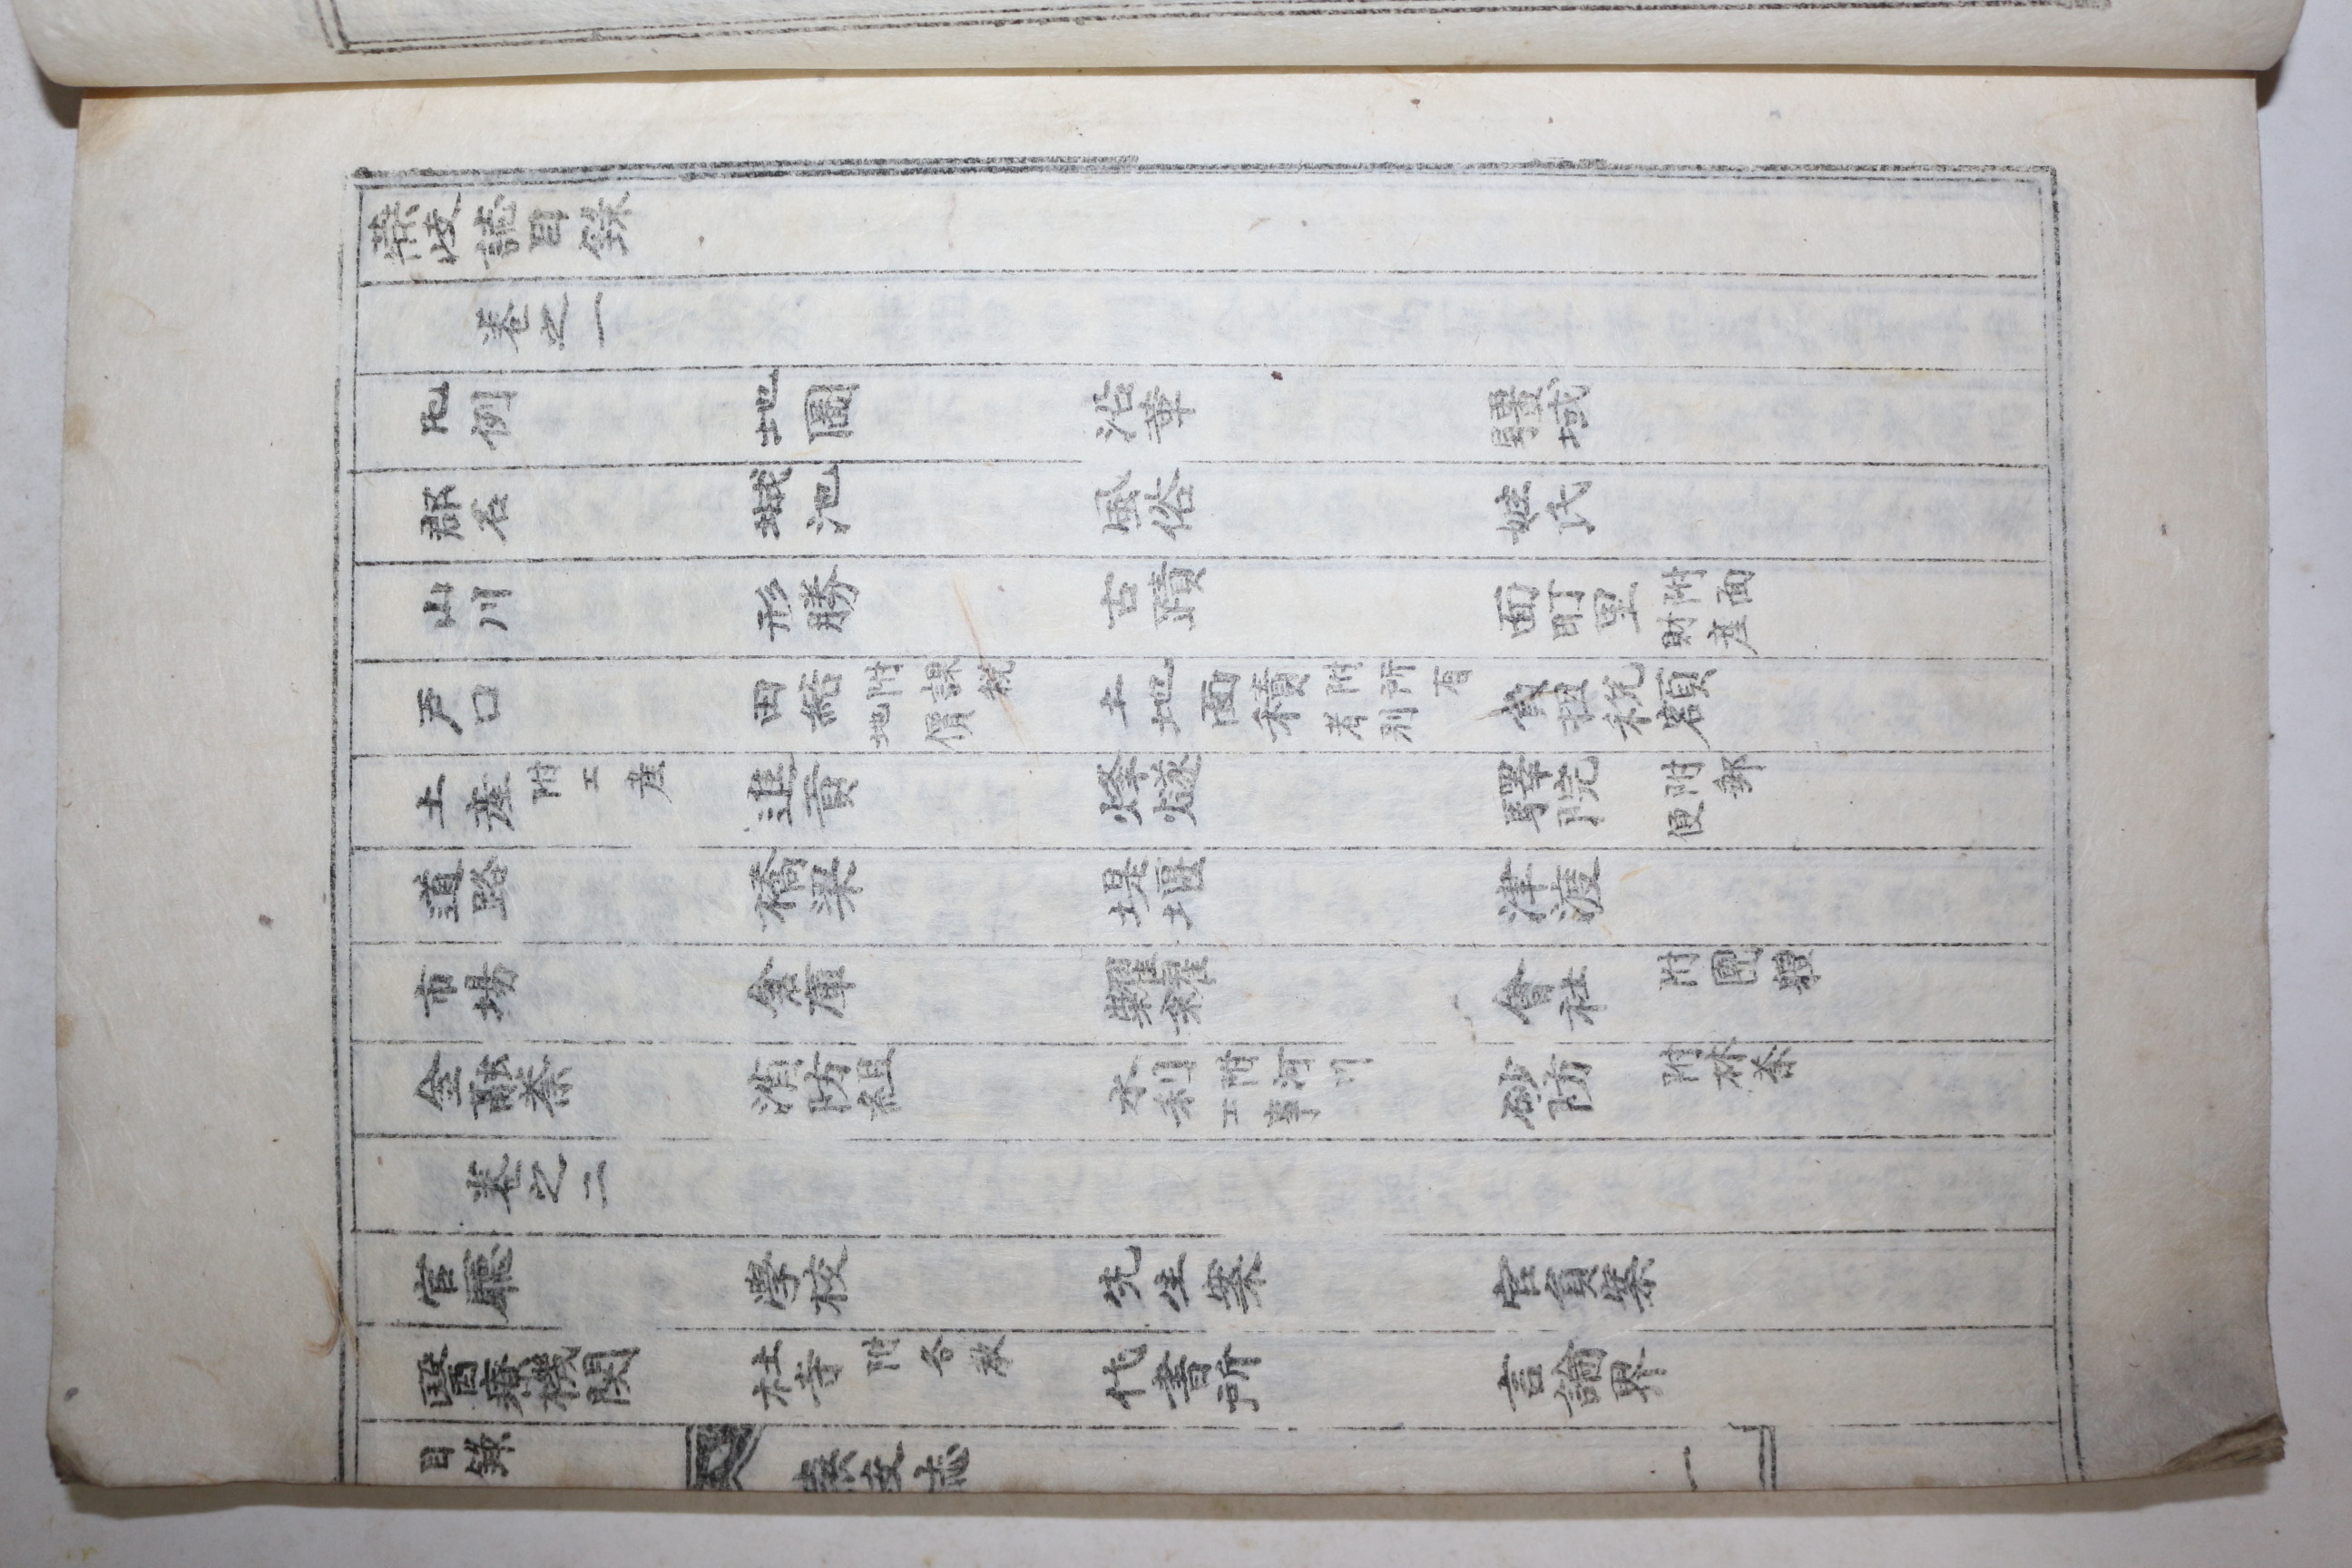 燕岐誌目錄
卷之一
凡例 地圖 沿革 疆域
郡名 城池 風俗 姓氏
山川 形勝 古蹟 面町里 附面財産
戶口 田結 附課稅地價 土地面積 附所有者別 負担稅額
土産 附工産 進貢 烽燧 驛院 附郵便
道路 橋梁 堤堰 津渡
市場 倉庫 糶糴 會社 附團體
金融業 消防組 水利 附河川工事 砂防 附林業
卷之二
官廳 學校 先生案 官員案
醫療機関 社寺 附各敎 代書所 言論界
目錄 燕岐志 一